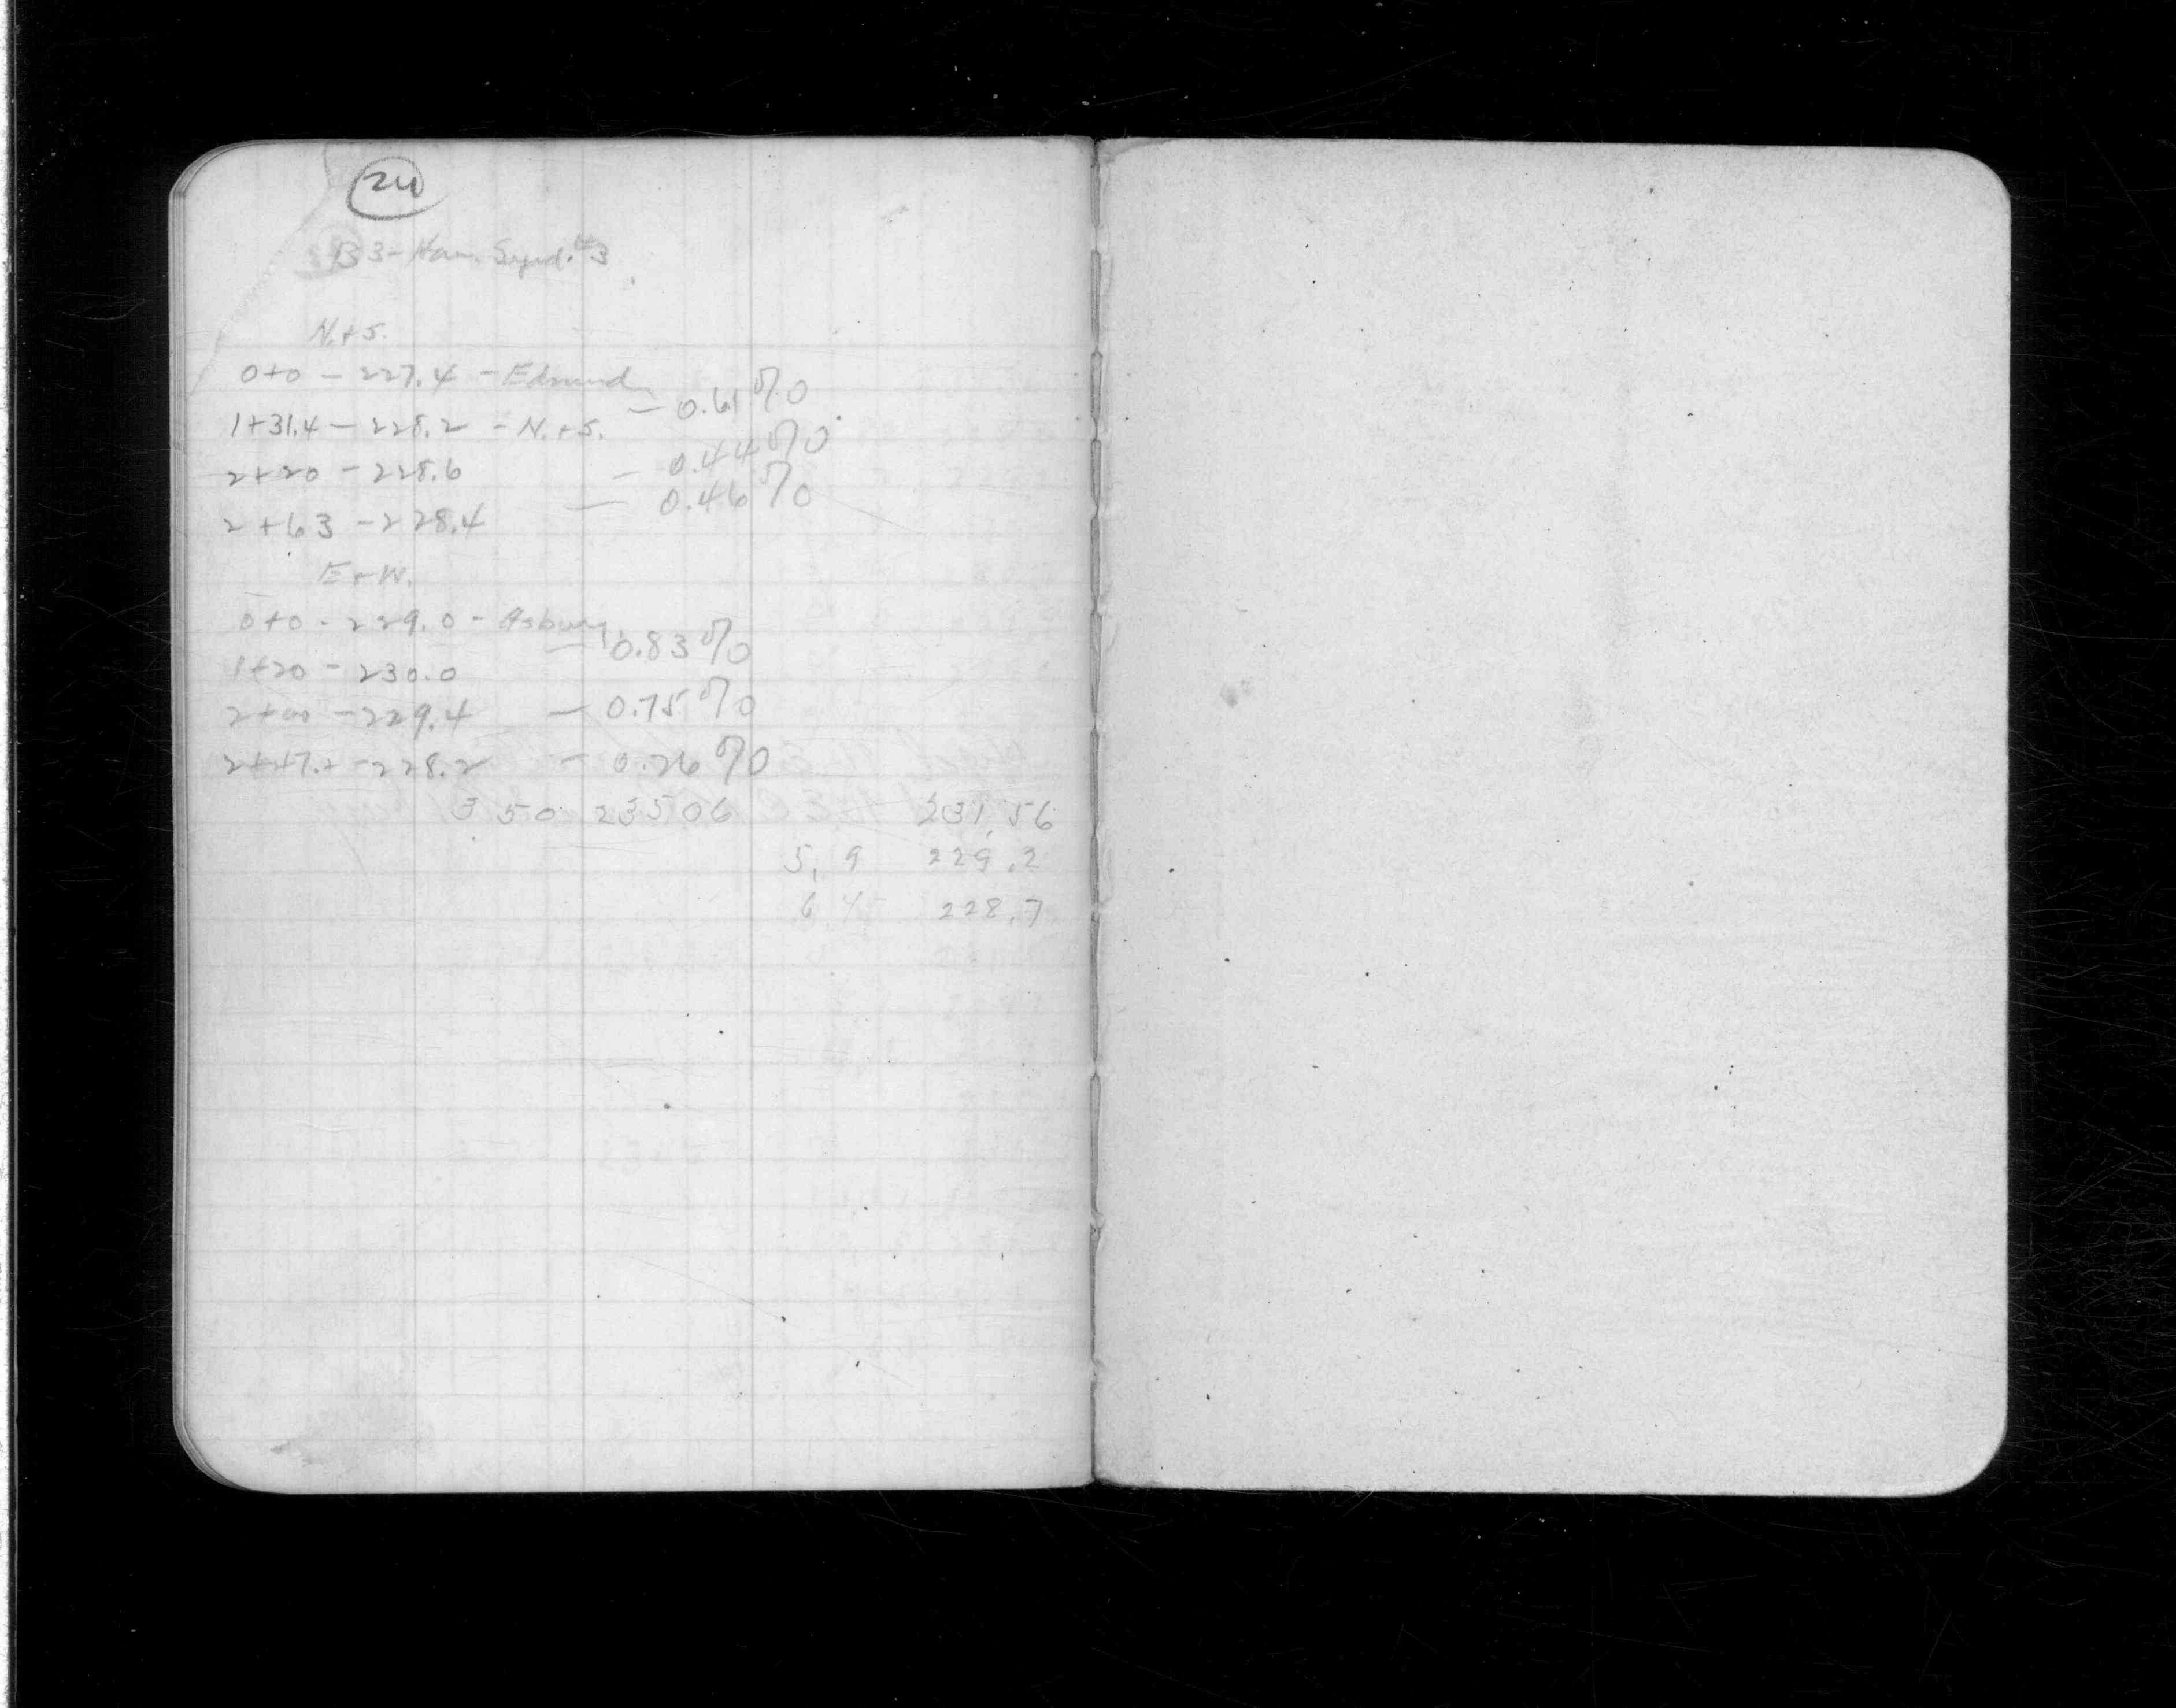 24
B3-Ham. Synd. #3
N.+S.
0+0 - 227.4 - Edmund
— 0.61 %
1+31.4 - 228.2 - N.+S.
— 0.44 %
2+20 - 228.6
— 0.46 %
2+63 - 228.4
E+W.
0+0 - 229.0 - Asbury
— 0.83 %
1+20 - 230.0
— 0.75 %
2+00 - 229.4
2+47.2 - 228.2 - 0.26 %
3 50 235 06 231.56
5.9 229.2
6.45 228.7